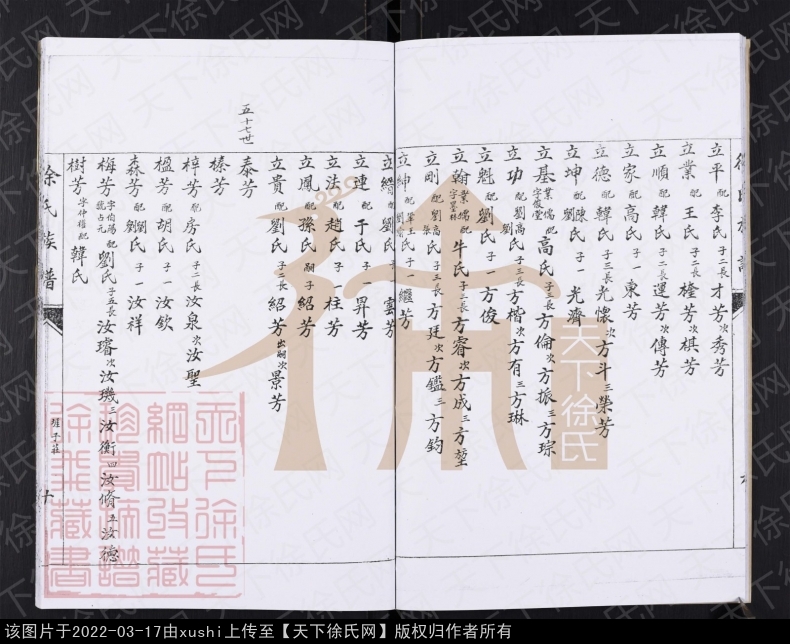 立平 配李氏 子二 長才芳 次秀芳
立業 配王氏 子二 長楏芳 次棋芳
立順 配韓氏 子二 長運芳 次傳芳
立家 配高氏 子一 東芳
立德 配韓氏 子三 長光懷 次方斗 三榮芳
立坤 配陳劉氏 子一 光濟
立基 業儒字俊堂 配高氏 子三 長方倫 次方振 三方琮
立功 配劉高氏 子三 長方楷 次方有 三方琳
立魁 配劉氏 子一 方俊
立翰 業儒字墨林 配牛氏 子三 長方睿 次方成 三方堃
立剛 配劉高 子三 長方廷 次方鑑 三方鈞
立紳 子一 繼芳
劉氏 子一 雲芳
立連 配于氏 子一 昇芳
立法 配趙氏 子一 柱芳
立鳳 配孫氏 嗣子紹芳
立貴 配劉氏 子二 長紹芳 出嗣 次景芳
五十七世
泰芳
榛芳
梓芳 配房氏 子二 長汝泉 次汝聖
楹芳 配胡氏 子一 汝欽
森芳 配劉劉氏 子一 汝祥
梅芳 字伯陽號占元 配劉氏 子五 長汝璿 次汝璣 三汝衡 四汝脩 五汝德
樹芳 字仲植 配韓氏
徐氏族譜
十
天下徐氏
天下徐氏网
该图片于2022-03-17由xushi上传至【天下徐氏网】版权归作者所有